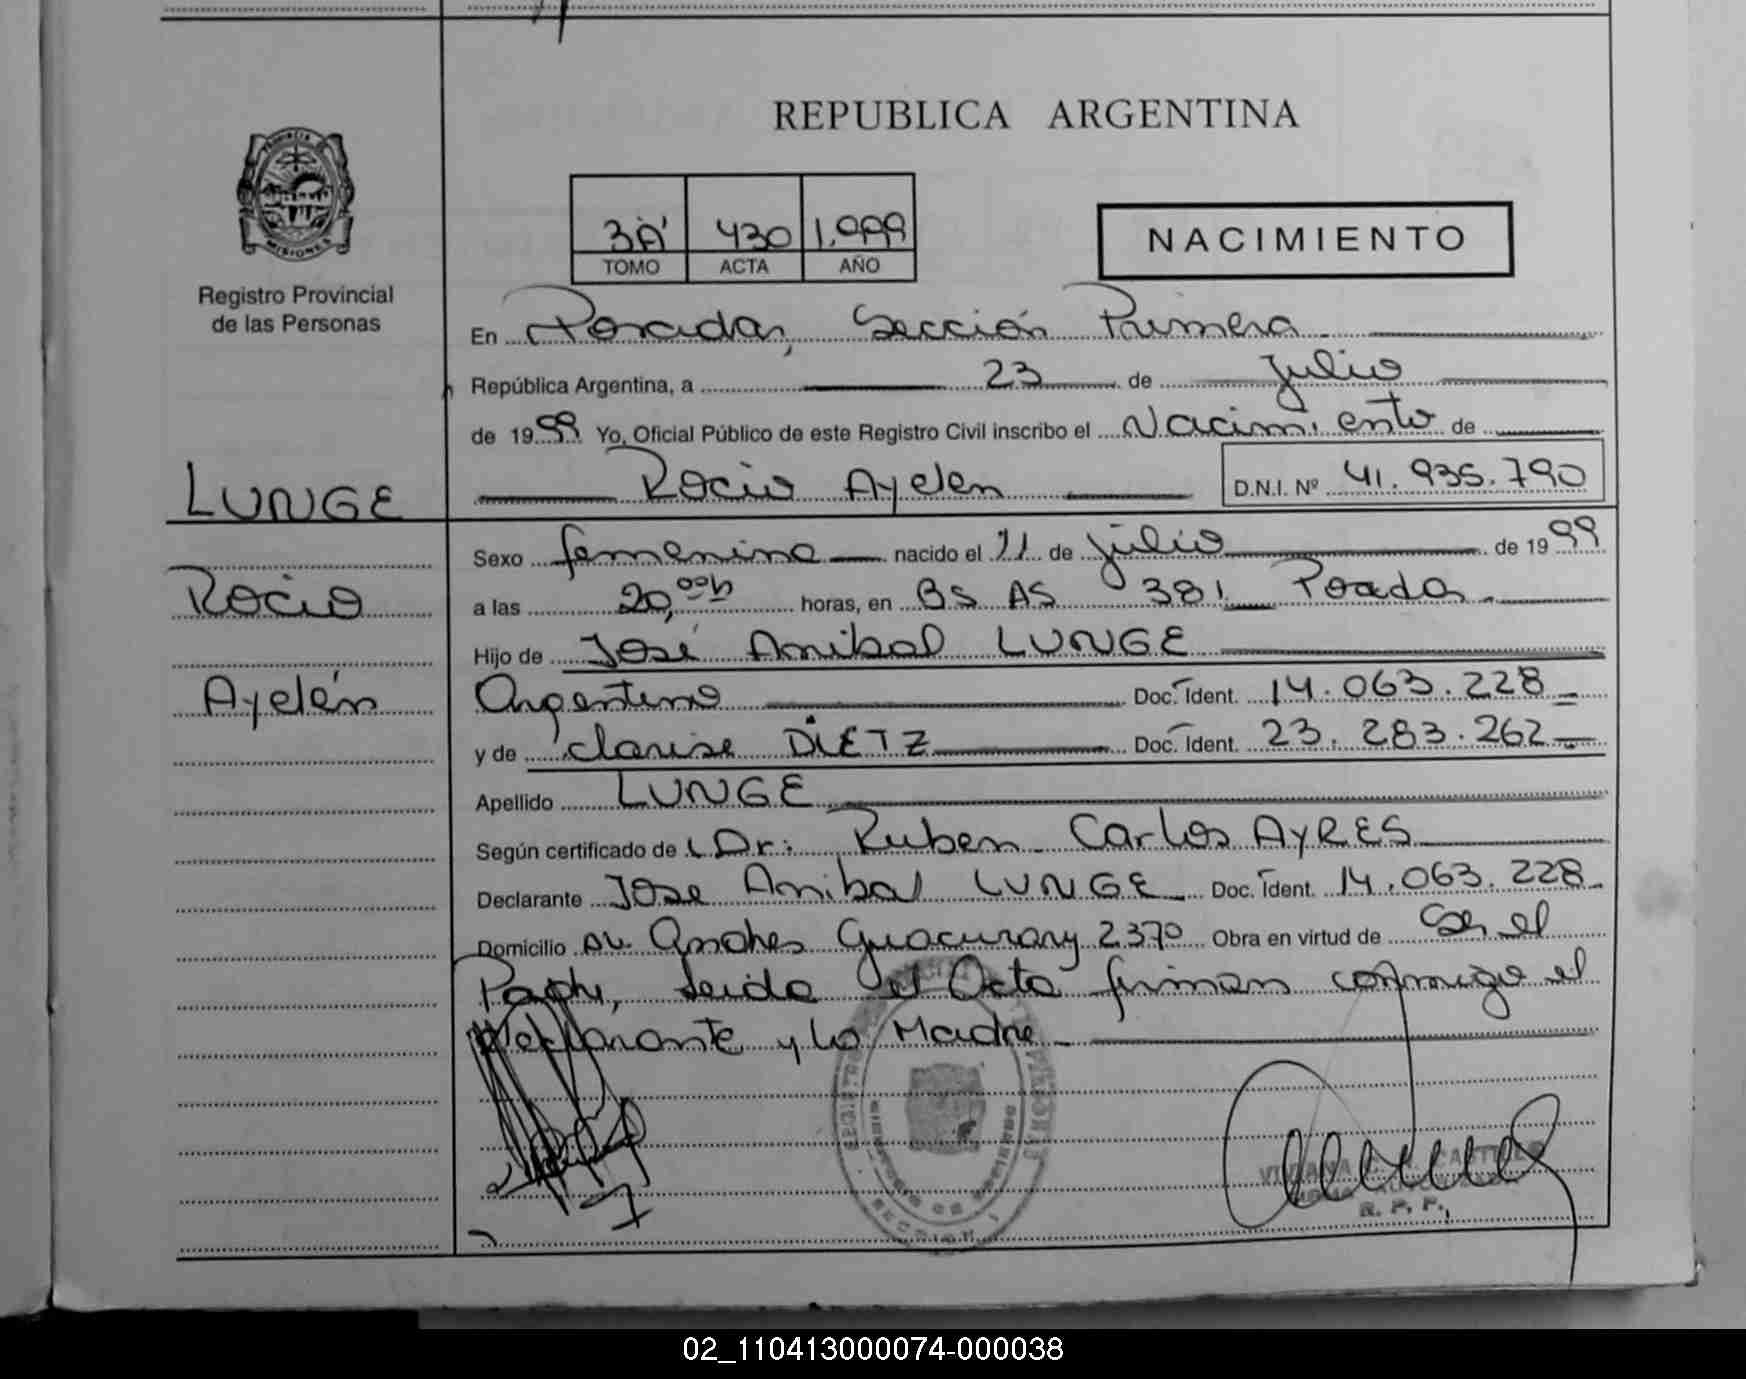 REPUBLICA ARGENTINA
PROVINCIA DE
MISIONES
Registro Provincial
de las Personas
3"A" 430 1.999
TOMO ACTA AÑO
NACIMIENTO
En Posadas, Sección Primera
República Argentina, a 23 de Julio
de 1999 Yo, Oficial Público de este Registro Civil inscribo el Nacimiento de
LUNGE
Rocio Ayelen D.N.I. Nº 41.935.790
Rocio
Ayelén
Sexo femenino nacido el 11 de julio de 1999
a las 20,00h horas, en BS AS 381 Posadas
Hijo de José Anibal LUNGE
Argentino Doc. Ident. 14.063.228
y de Clarise DIETZ Doc. Ident. 23.283.262
Apellido LUNGE
Según certificado de Dr: Ruben Carlos AYRES
Declarante Jose Anibal LUNGE Doc. Ident. 14.063.228
Domicilio Av. Andres Guacurary 2370 Obra en virtud de Ser el
Padre, Leida el Acta firman conmigo el
declarante y la Madre
SECCION 1
VIVIANA CASTILLO
R. P. P.
02_110413000074-000038